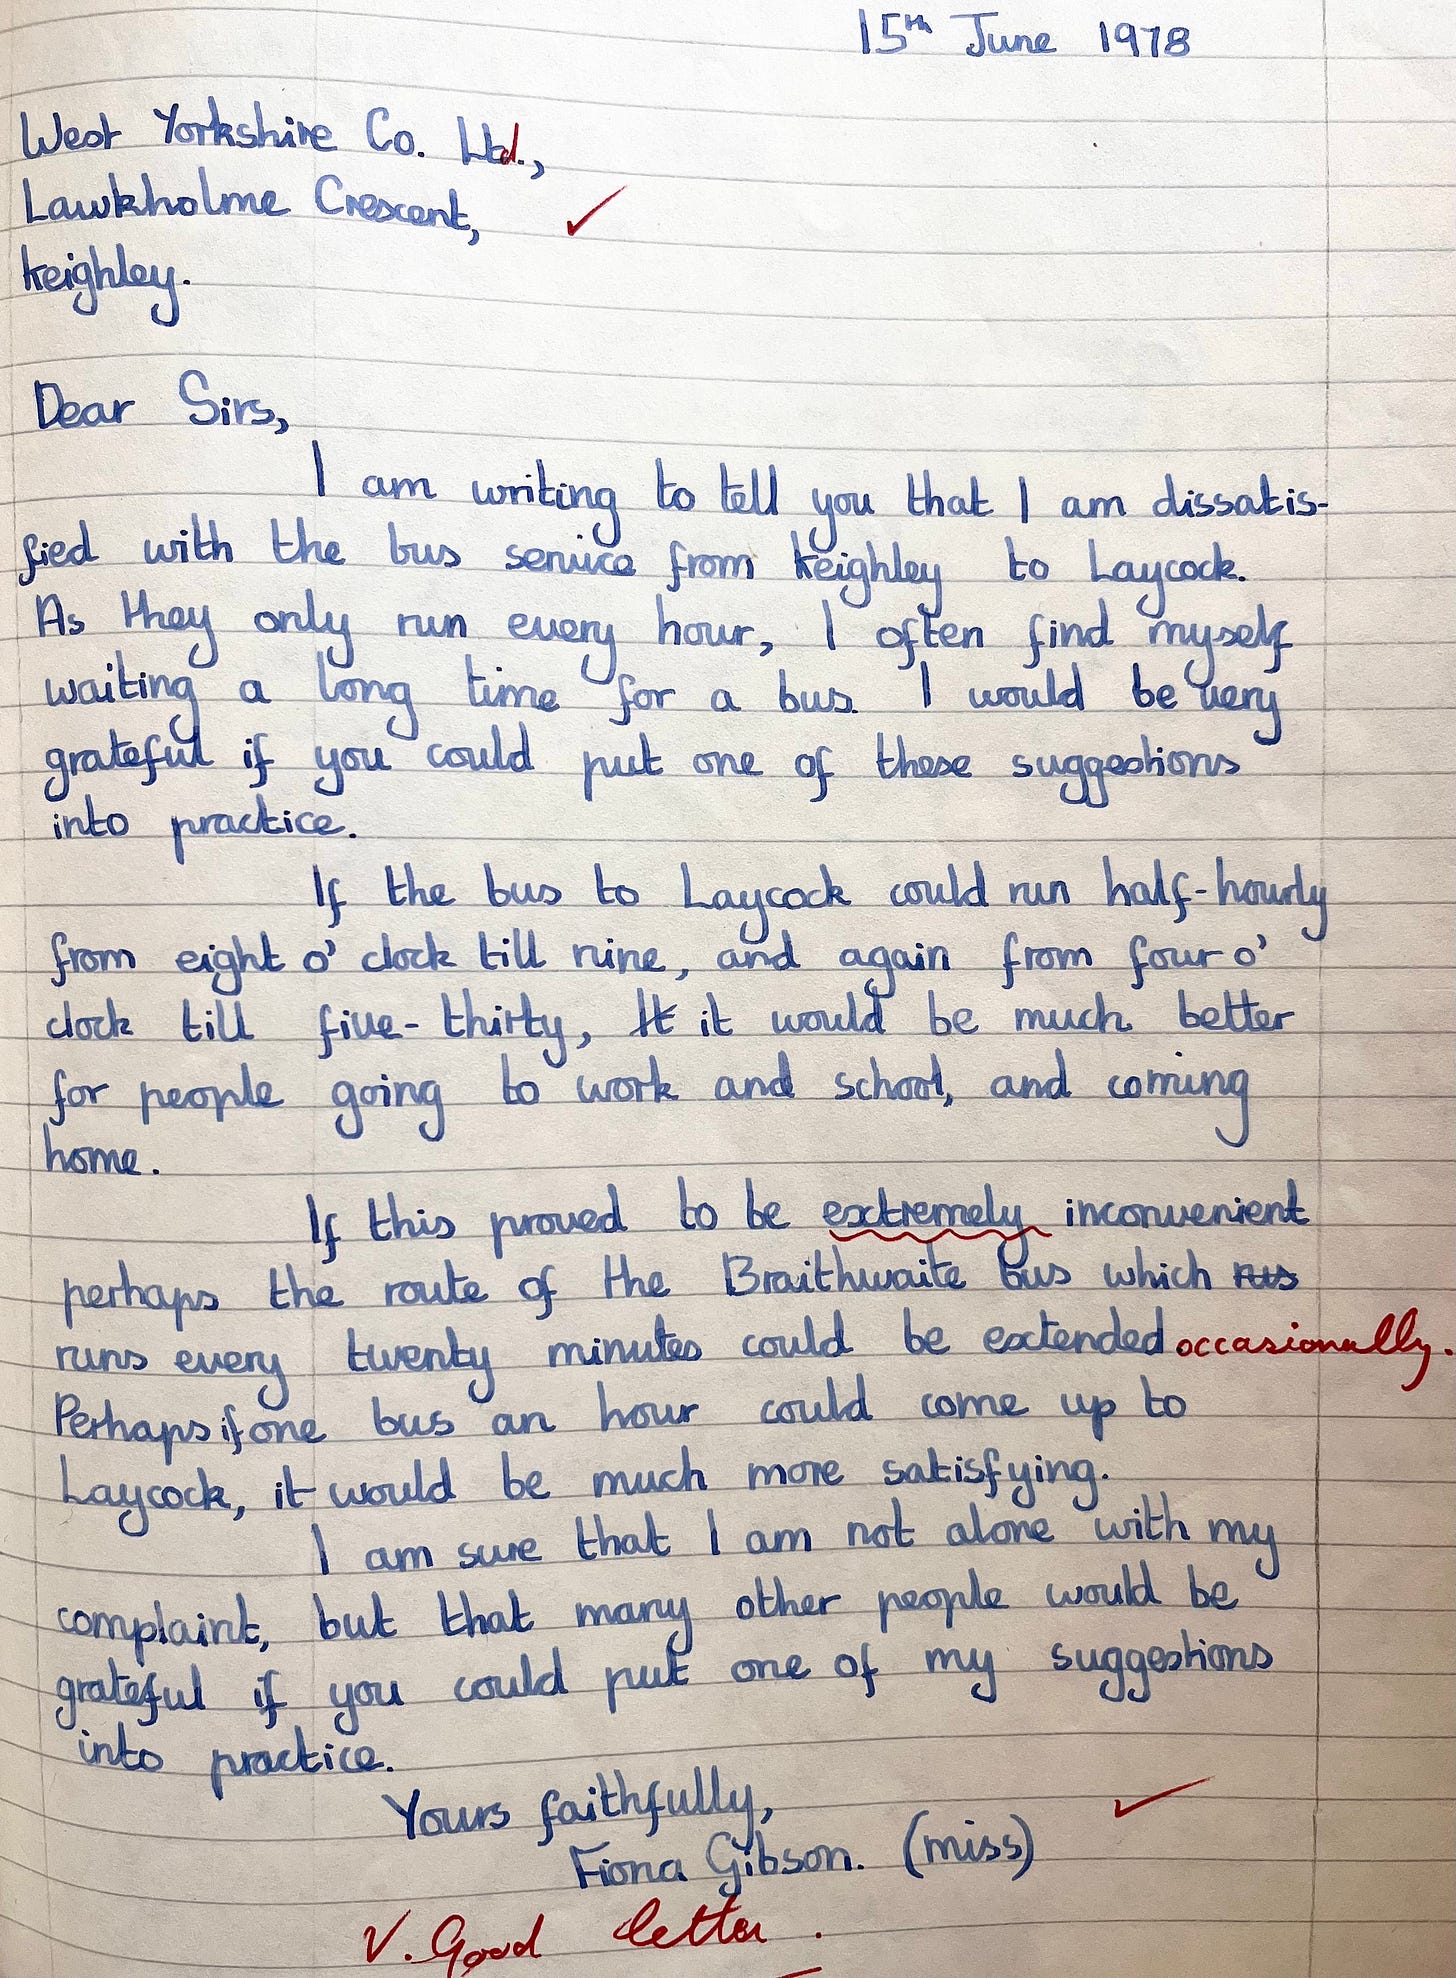 15th June 1978
West Yorkshire Co. Ltd.,
Lawkholme Crescent,
Keighley.
Dear Sirs,
I am writing to tell you that I am dissatis-
fied with the bus service from Keighley to Laycock.
As they only run every hour, I often find myself
waiting a long time for a bus. I would be very
grateful if you could put one of these suggestions
into practice.
If the bus to Laycock could run half-hourly
from eight o' clock till nine, and again from four o'
clock till five-thirty, It it would be much better
for people going to work and school, and coming
home.
If this proved to be extremely inconvenient
perhaps the route of the Braithwaite bus which rus
runs every twenty minutes could be extended occasionally.
Perhaps if one bus an hour could come up to
Laycock, it would be much more satisfying.
I am sure that I am not alone with my
complaint, but that many other people would be
grateful if you could put one of my suggestions
into practice.
Yours faithfully,
Fiona Gibson. (miss)
V. Good letter.